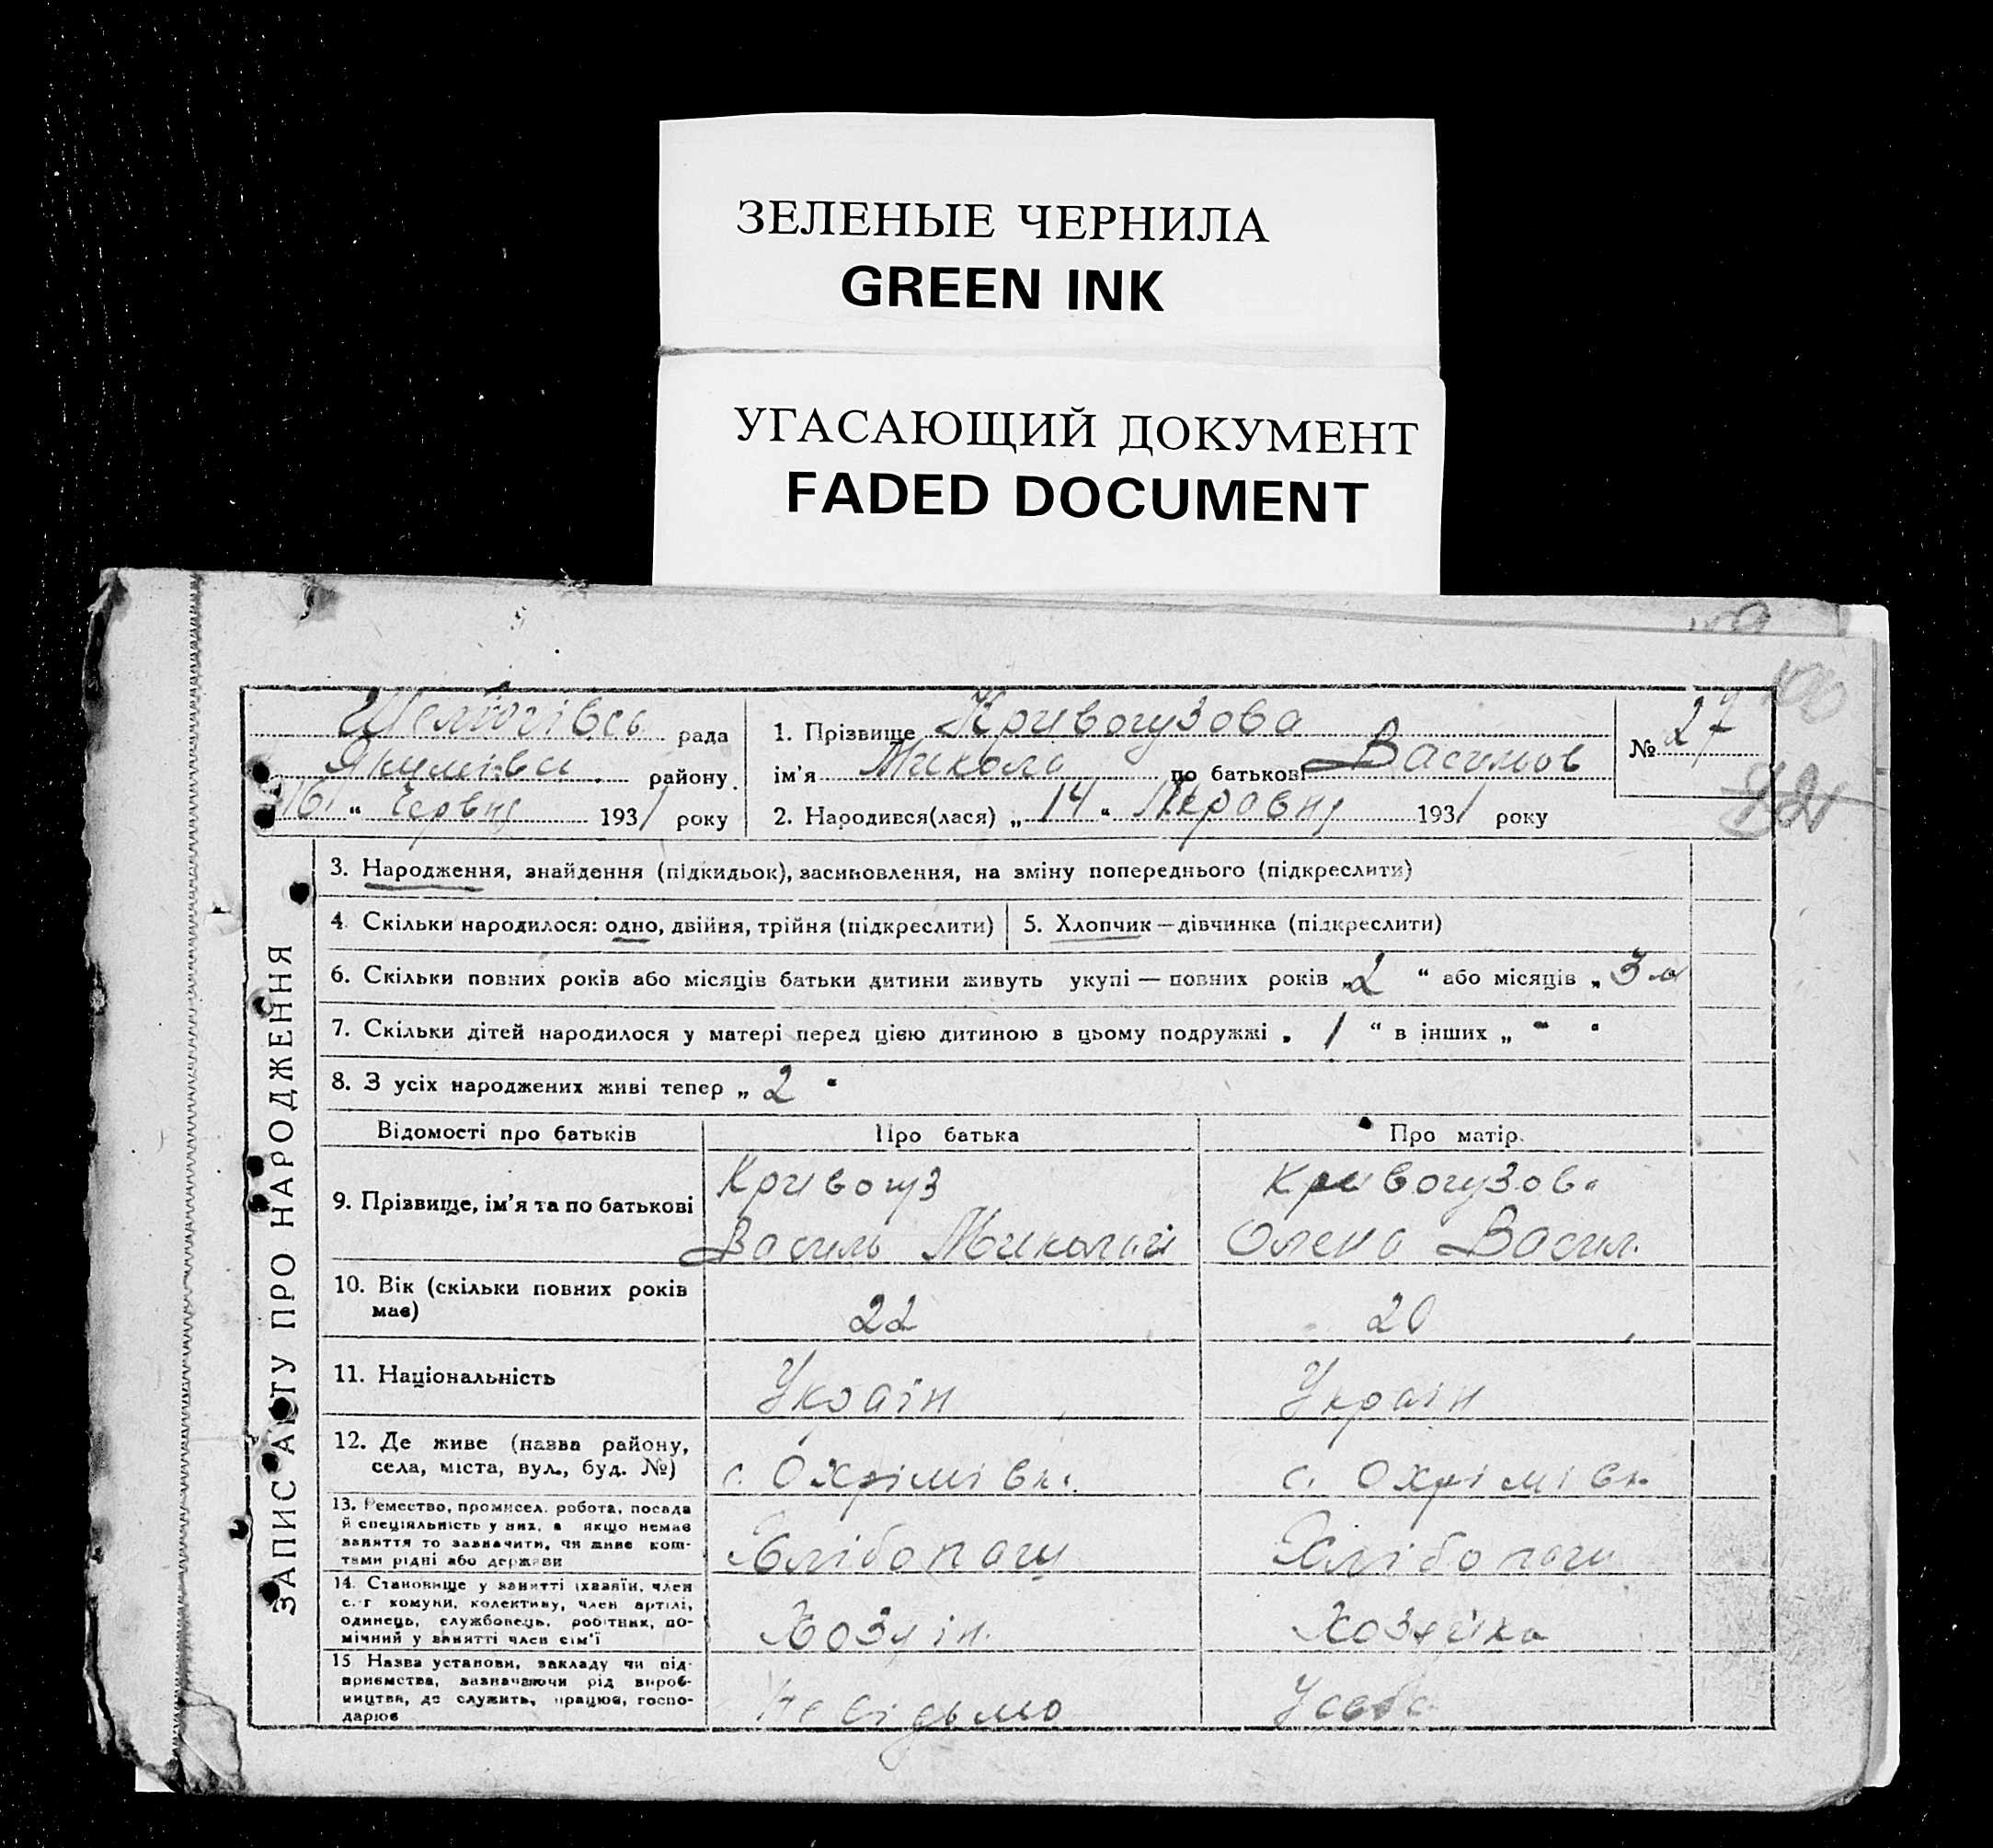 ЗЕЛЕНЫЕ ЧЕРНИЛА
GREEN INK
УГАСАЮЩИЙ ДОКУМЕНТ
FADED DOCUMENT
100
рада
Якимівсь району
16 " Червня 1931 року
1. Прізвище Кривогузова
ім'я Микола по батькові Васильов
2. Народився(лася) „ 14 " Червня 1931 року
№ 27
ЗАПИС АКТУ ПРО НАРОДЖЕННЯ
3. Народження, знайдення (підкидьок), засиновлення, на зміну попереднього (підкреслити)
4. Скільки народилося: одно, двійня, трійня (підкреслити)
5. Хлопчик — дівчинка (підкреслити)
6. Скільки повних років або місяців батьки дитини живуть укупі — повних років „ 2 " або місяців „ 3
7. Скільки дітей народилося у матері перед цією дитиною в цьому подружжі „ 1 " в інших „ - "
8. З усіх народжених живі тепер „ 2 "
Відомості про батьків Про батька Про матір
9. Прізвище, ім'я та по батькові
Кривогуз
Василь Миколай
Кривогузова
Олена Васил.
10. Вік (скільки повних років
має)
22
20
11. Національність
Україн
Україн
12. Де живе (назва району,
села, міста, вул., буд. №)
с. Охрімівк.
с. Охрімівк.
13. Ремество, промисел, робота, посада
й спеціяльність у них, а якщо немає
заняття то зазначити, чи живе кош-
тами рідні або держави
Хлібопашц
Хлібопаш
14. Становище у занятті (хазяїн, член
с.-г комуни, колективу, член артілі,
одинець, службовець, робітник, по-
мічний у занятті член сім'ї
Хозяін.
Хозяйка
15 Назва установи, закладу чи під-
приємства, зазначаючи рід вироб-
ництва, де служить, працює, госпо-
дарює
Усебе